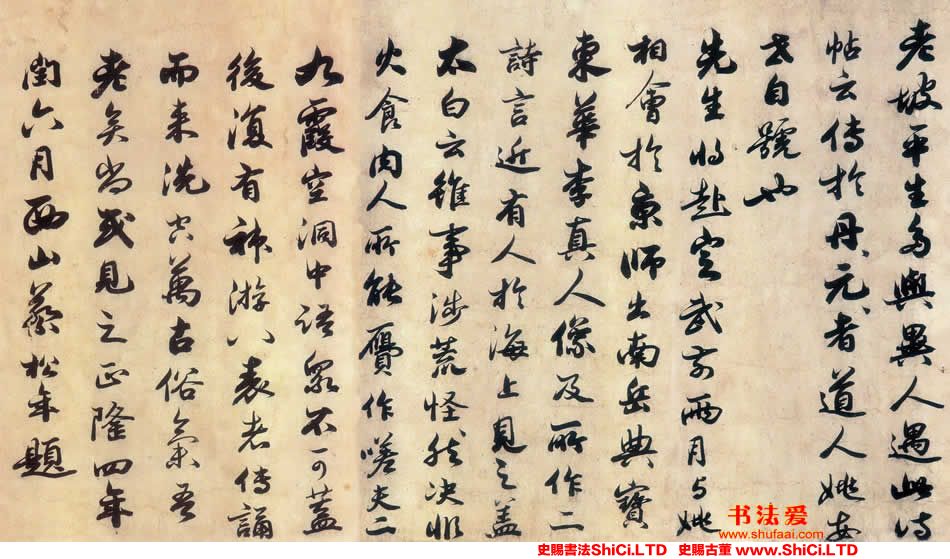 老坡平生多與異人遇此詩
帖云傳於丹元丹元者道人姚安
世自號也
先生將赴定武前兩月與姚
相會於京師出南岳典寶
東華李真人像及所作二
詩言近有人於海上見之蓋
太白云雖事涉荒怪然決非
火食肉人所能贗作嗟夫二
九霞空洞中語眾不可蓋
後復有神游八表者傳誦
而来洗空萬古俗氣吾
老矣尚或見之正隆四年
閏六月西山蔡松年題
书法爱
www.shufaai.com
史賜書法ShiCi.LTD 史賜古董 www.ShiCi.LTD